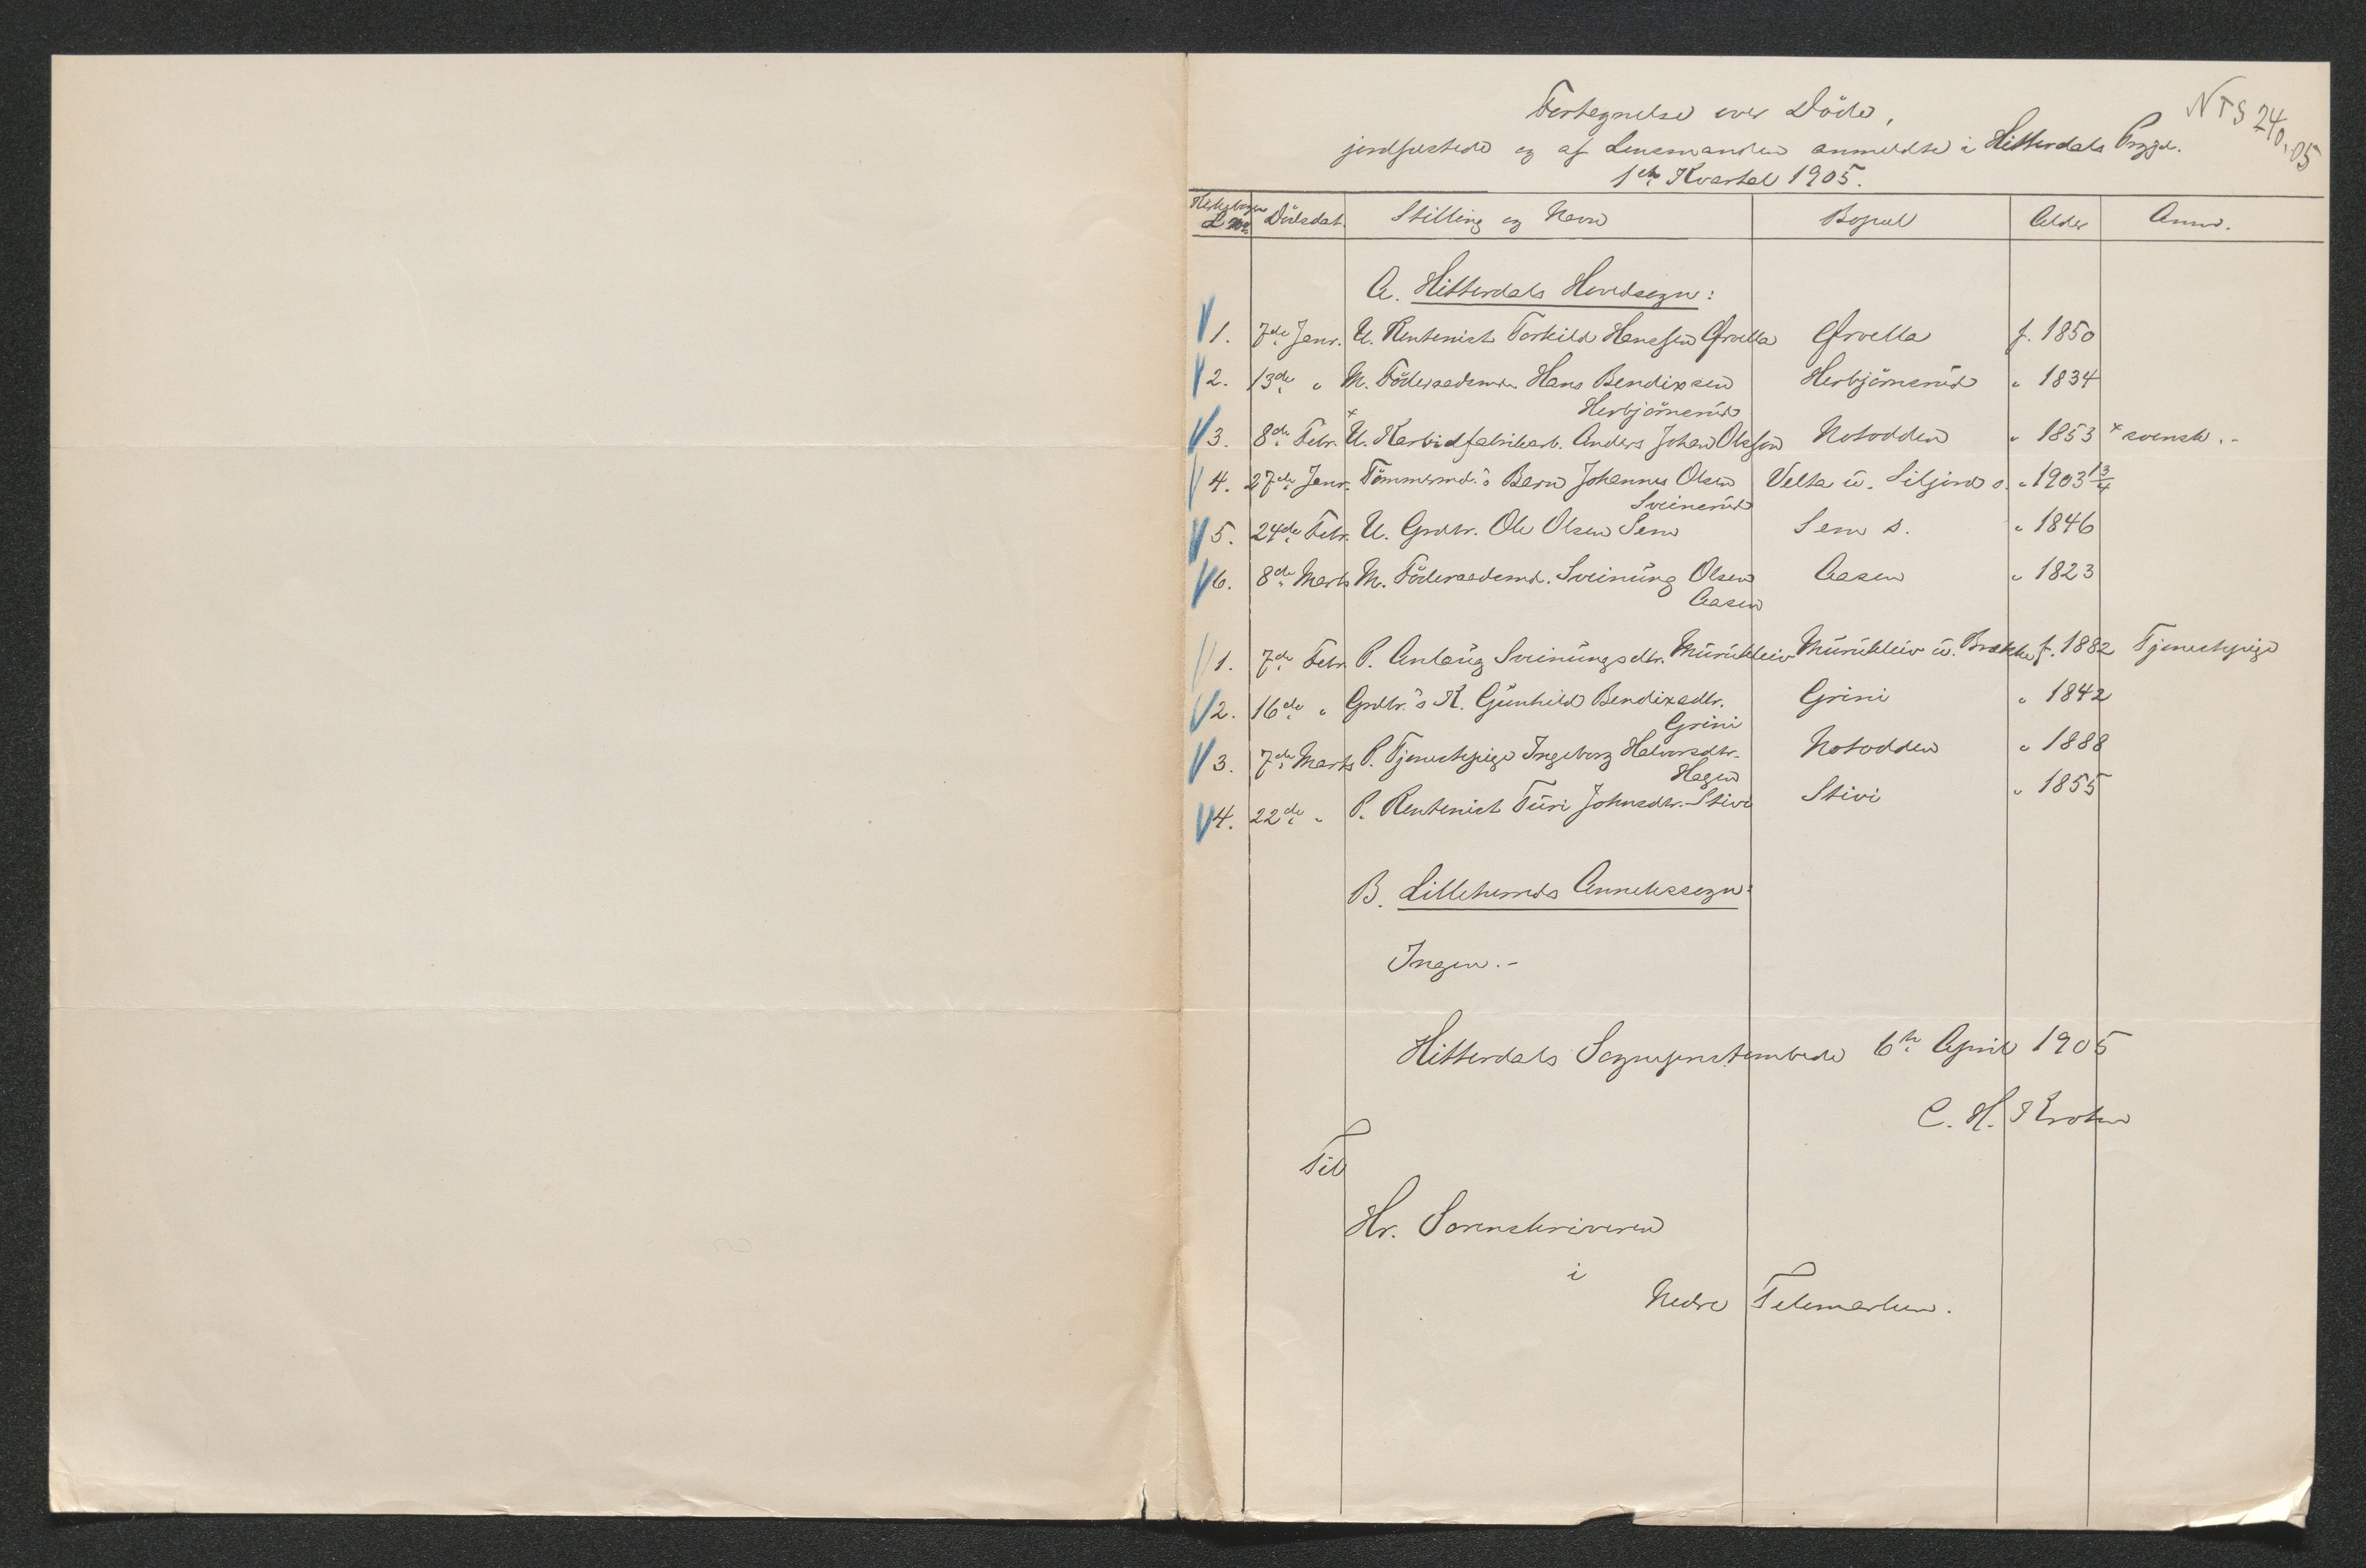 Fortegnelse over Døde,
jordfæstede og af Lensmanden anmeldte i Hitterdals Prgjd.
1ste Kvartal 1905.
NTS 240.05
Kirkebogens L. No. Dødsdat. Stilling og Navn Bopæl Alder Anm.
A. Hitterdals Hovedsogn:
1. 7de Janr. U. Rentenist Torkild Hanssen Ørvella Ørvella f. 1850
2. 13de " M. Föderaadsmd. Hans Bendixsen Herbjörnsrud " 1834
Herbjörnsrud
3. 8de Febr. × U. Karbidfabrikarb. Anders Johan Olsson Notodden " 1853 × svensk.-
4. 27de Janr. Tömmermd.'s Barn Johannes Olsen Velta u. Siljord s. " 1903 13/4
Sveinsrud
5. 24de Febr. U. Grdbr. Ole Olsen Sem Sem s. " 1846
6. 8de Marts M. Föderaadsmd. Sveinung Olsen Aasen " 1823
Aasen
1. 7de Febr. P. Anlaug Sveinungsdtr. Murukleiv Murukleiv u. Brække f. 1882 Tjenestepige
2. 16de " Grdbr.'s K. Gunhild Bendixsdtr. Grini " 1842
Grini
3. 7de Marts P. Tjenestepige Ingeborg Halvorsdtr. Notodden " 1888
Hagen
4. 22de " P. Rentenist Turi Johnsdtr. Stivi Stivi " 1855
B. Lilleherreds Annekssogn:
Ingen.-
Hitterdals Sogneprestembede 6te April 1905
C. H. Krohn
Til
Hr. Sorenskriveren
i
Nedre Telemarken.